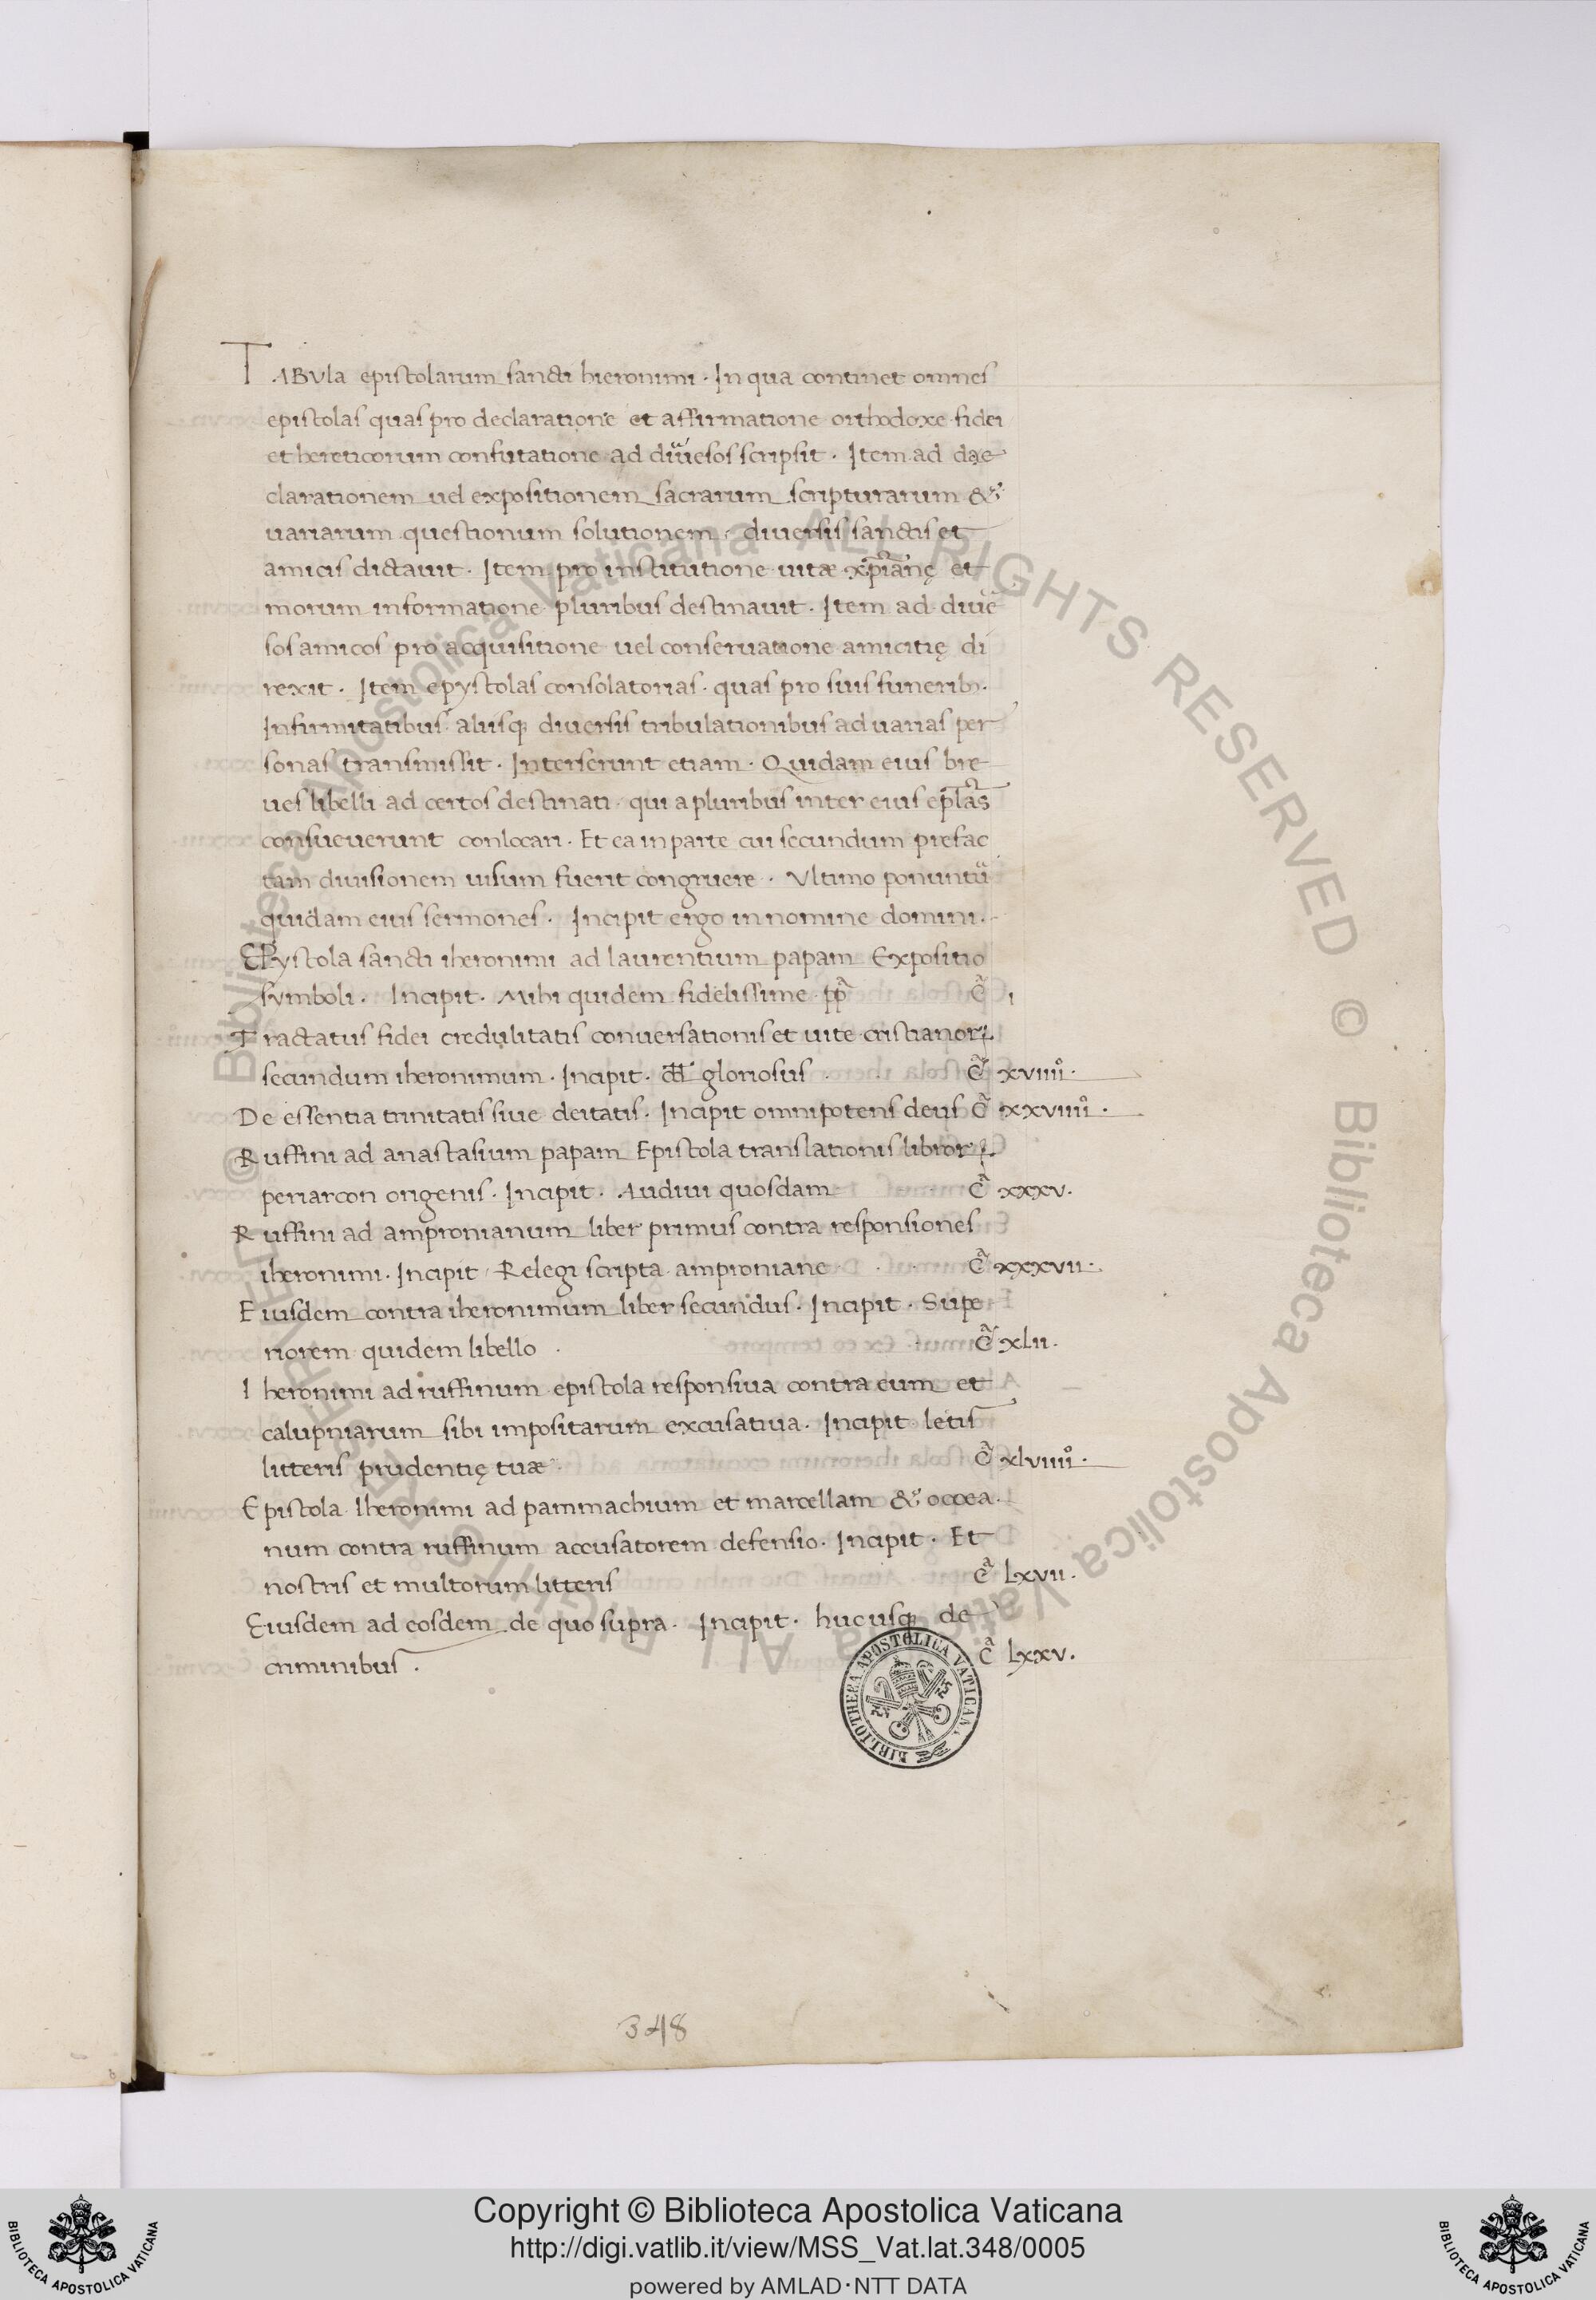 TABVla epistolarum sancti hieronimi. In qua continet omnes
epistolas quas pro declaratione et affirmatione orthodoxe fidei
et hereticorum confutatione ad diůesos scripsit. Item ad dae
clarationem uel expositionem sacrarum scripturarum &
uariarum questionum solutionem. diuersis sanctis et
amicis dictauit. Item pro institutione uitæ xp̄ianę et
morum informatione pluribus destinauit. Item ad diue᷑
sos amicos pro acquisitione uel conseruatione amicitię di
rexit. Item epystolas consolatorias. quas pro suis funerib;.
Infirmitatibus. aliisq; diuersis tribulationibus ad uarias per
sonas transmissit. Interserunt etiam. Quidam eius bre
ues libelli ad certos destinati. qui a pluribus inter eius ep̄las
consueuerunt conlocari. Et ea in parte cui secundum prefac
tam diuisionem uisum fuerit congruere. Vltimo ponuntu᷑
quidam eius sermones. Incipit ergo in nomine domini.
EPystola sancti iheronimi ad laurentium papam Expositio
symboli. Incipit. Mihi quidem fidelissime pp̄ cͣ̄ i
Tractatus fidei credulitatis conuersationis et uite cristianorꝝ
secundum iheronimum. Incipit. dd̄ gloriosus cͣ̄ xviiiiº.
De essentia trinitatis siue deitatis. Incipit omnipotens deus cͣ̄ xxviiiiº.
Ruffini ad anastasium papam Epistola translationis librorꝝ
periarcon origenis. Incipit. Audiui quosdam cͣ̄ xxxv.
Ruffini ad ampronianum liber primus contra responsiones
iheronimi. Incipit Relegi scripta amproniane cͣ̄ xxxvii.
Eiusdem contra iheronimum liber secundus. Incipit. Supe
riorem quidem libello. cͣ̄ xlii.
Iheronimi ad ruffinum epistola responsiua contra eum et
calupniarum sibi impositarum excusatiua. Incipit letis
litteris prudentię tuæ. cͣ̄ xlviiiiº.
Epistola Iheronimi ad pammachium et marcellam & occea
num contra ruffinum accusatorem defensio. Incipit. Et
nostris et multorum litteris cͣ̄ Lxvii.
Eiusdem ad eosdem de quo supra. Incipit. hucusq; de
criminibus. cͣ̄ Lxxv.
BIBLIOTHECA APOSTOLICA VATICANA
348
© Biblioteca Apostolica Vaticana ALL RIGHTS RESERVED © Biblioteca Apostolica Vaticana ALL RIGHTS RESERVED
Copyright © Biblioteca Apostolica Vaticana
http://digi.vatlib.it/view/MSS_Vat.lat.348/0005
powered by AMLAD·NTT DATA
BIBLIOTECA APOSTOLICA VATICANA
BIBLIOTECA APOSTOLICA VATICANA